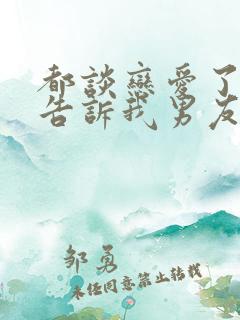 都談戀愛了
告訴我男友
邹勇
未经同意禁止转载